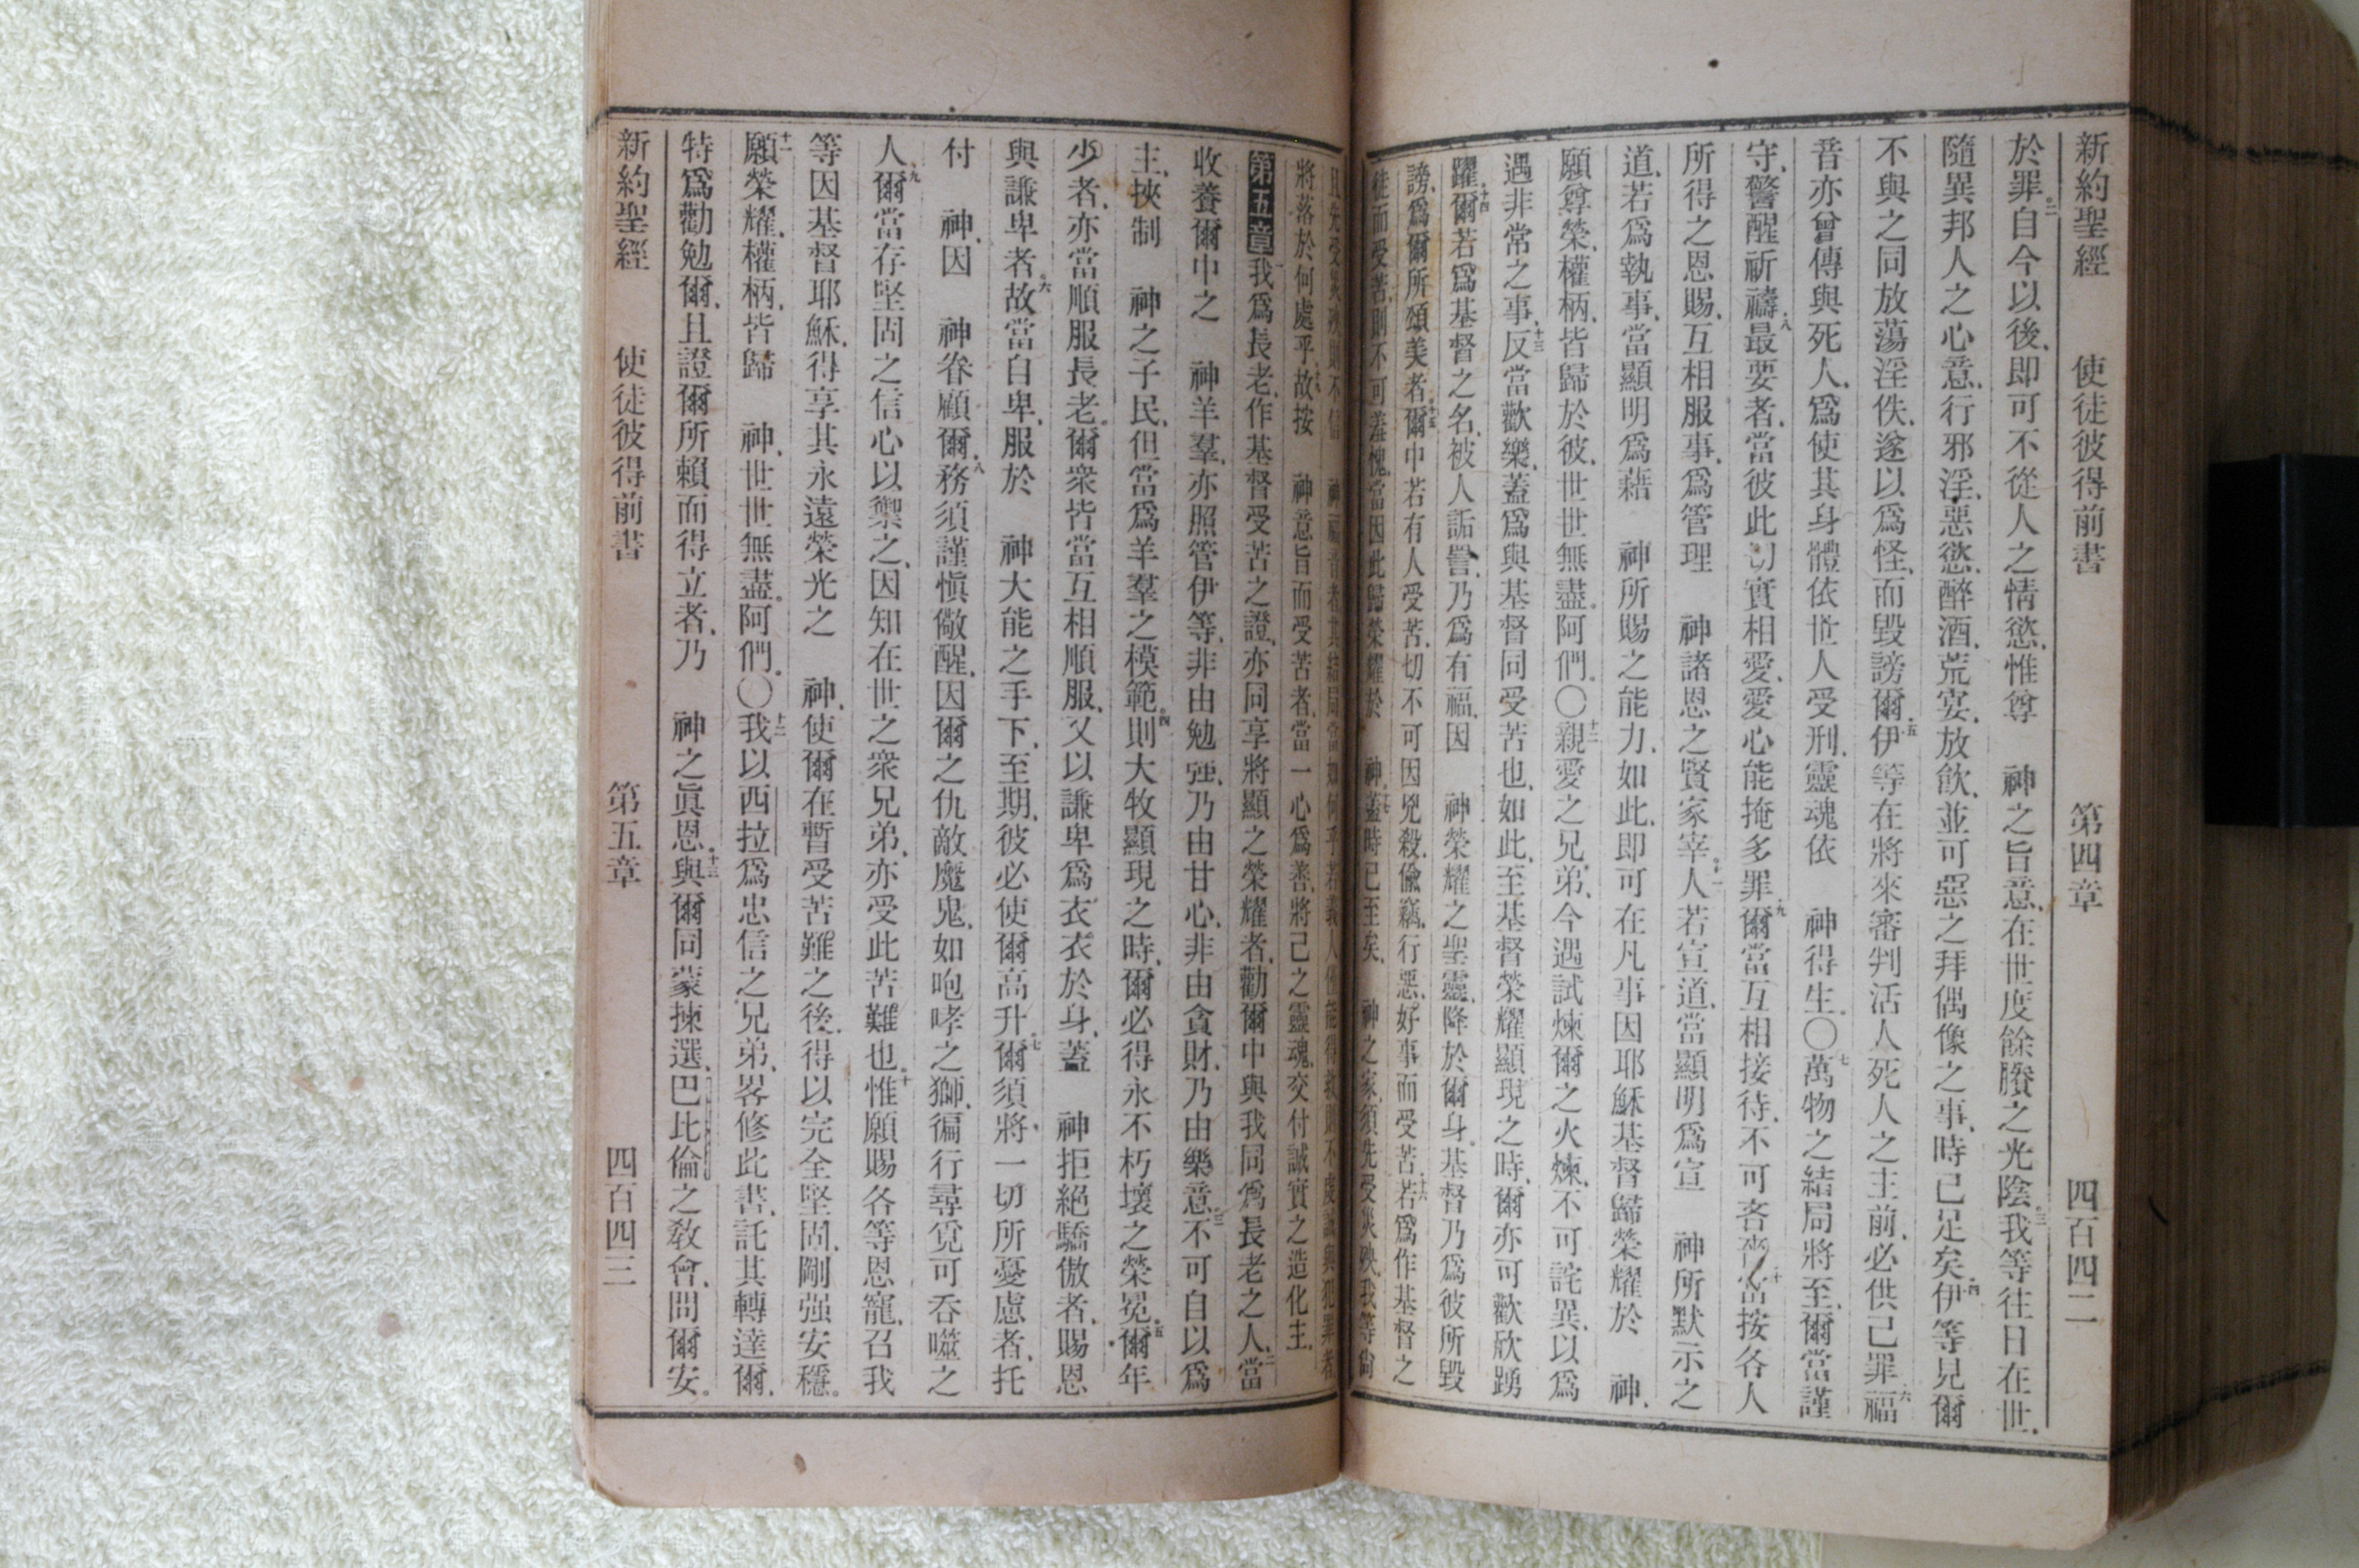 新約聖經　使徒彼得前書　第四章　四百四二
於罪。二自今以後、卽可不從人之情慾、惟尊　神之旨意、在世度餘賸之光陰。三我等往日在世、
隨異邦人之心意、行邪淫、惡慾、醉酒、荒宴、放飲、並可惡之拜偶像之事、時已足矣。四伊等見爾
不與之同放蕩淫佚、遂以爲怪、而毀謗爾。五伊等在將來審判活人死人之主前、必供己罪。六福
音亦曾傳與死人、爲使其身體依世人受刑、靈魂依　神得生。〇七萬物之結局將至、爾當謹
守、警醒祈禱。八最要者、當彼此切實相愛、愛心能掩多罪。九爾當互相接待、不可吝嗇。十當按各人
所得之恩賜、互相服事、爲管理　神諸恩之賢家宰。十一人若宣道、當顯明爲宣　神所默示之
道、若爲執事、當顯明爲藉　神所賜之能力、如此、卽可在凡事因耶穌基督歸榮耀於　神、
願尊榮、權柄、皆歸於彼、世世無盡。阿們。〇十二親愛之兄弟、今遇試煉爾之火煉、不可詫異、以爲
遇非常之事、十三反當歡樂、蓋爲與基督同受苦也、如此、至基督榮耀顯現之時、爾亦可歡欣踴
躍。十四爾若爲基督之名、被人詬詈、乃爲有福、因　神榮耀之聖靈、降於爾身。基督乃爲彼所毀
謗、爲爾所頌美者。十五爾中若有人受苦、切不可因兇殺、偸竊、行惡、好事而受苦。十六若爲作基督之
徒而受苦、則不可羞愧、當因此歸榮耀於　神。十七蓋時已至矣、　神之家、須先受災殃、我等尙
且先受災殃、則不信　神福音者、其結局當如何乎。若義人僅能得救、則不虔誠與犯罪者
將落於何處乎。故按　神意旨而受苦者、當一心爲善、將己之靈魂、交付誠實之造化主。
第五章一我爲長老、作基督受苦之證、亦同享將顯之榮耀者、勸爾中與我同爲長老之人、二當
收養爾中之　神羊羣、亦照管伊等、非由勉强、乃由甘心、非由貪財、乃由樂意。三不可自以爲
主、挾制　神之子民、但當爲羊羣之模範。四則大牧顯現之時、爾必得永不朽壞之榮冕。五爾年
少者、亦當順服長老。爾衆皆當互相順服、又以謙卑爲衣、衣於身、蓋　神拒絕驕傲者、賜恩
與謙卑者。六故當自卑、服於　神大能之手下、至期、彼必使爾高升。七爾須將一切所憂慮者、托
付　神、因　神眷顧爾。八務須謹愼儆醒、因爾之仇敵魔鬼、如咆哮之獅、徧行尋覓可吞噬之
人、九爾當存堅固之信心以禦之、因知在世之衆兄弟、亦受此苦難也。十惟願賜各等恩寵、召我
等因基督耶穌、得享其永遠榮光之　神、使爾在暫受苦難之後、得以完全堅固、剛强安穩。
十一願榮耀、權柄、皆歸　神、世世無盡。阿們。〇十二我以西拉爲忠信之兄弟、畧修此書、託其轉達爾、
特爲勸勉爾、且證爾所賴而得立者、乃　神之眞恩。十三與爾同蒙揀選、巴比倫之敎會、問爾安。
新約聖經　使徒彼得前書　第五章　四百四三